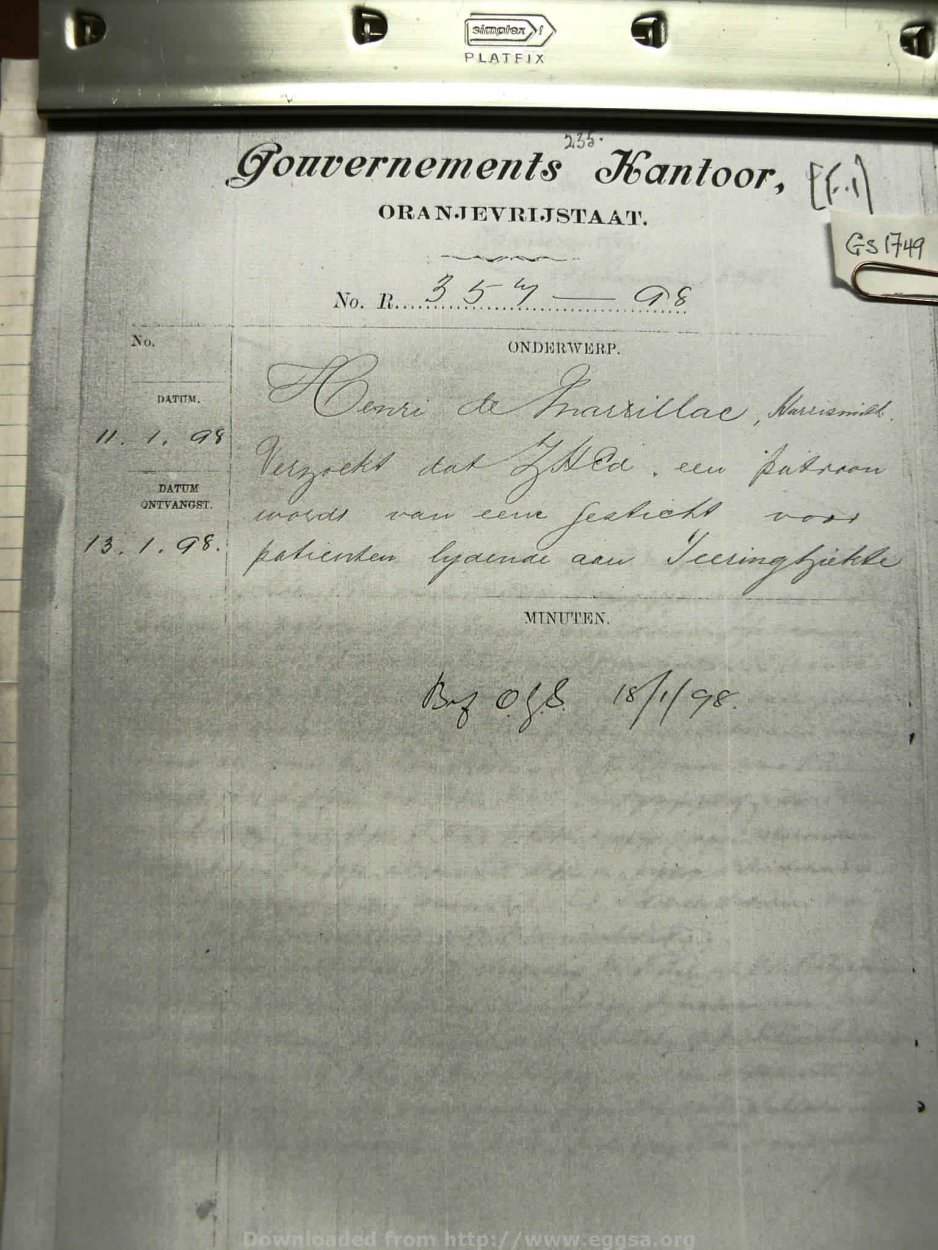 simplex
PLATFIX
235.
Gouvernements Kantoor,
ORANJEVRIJSTAAT.
GS 1749
No. R. 357 — 98
No.
ONDERWERP.
DATUM.
11. 1. 98
DATUM
ONTVANGST.
13. 1. 98.
Henri de Marrillac, Harrismith.
Verzoekt dat ZHEd. een patroon
wordt van een gesticht voor
patienten lydende aan Teeringziekte
MINUTEN.
18/1/98.
Downloaded from http://www.eggsa.org